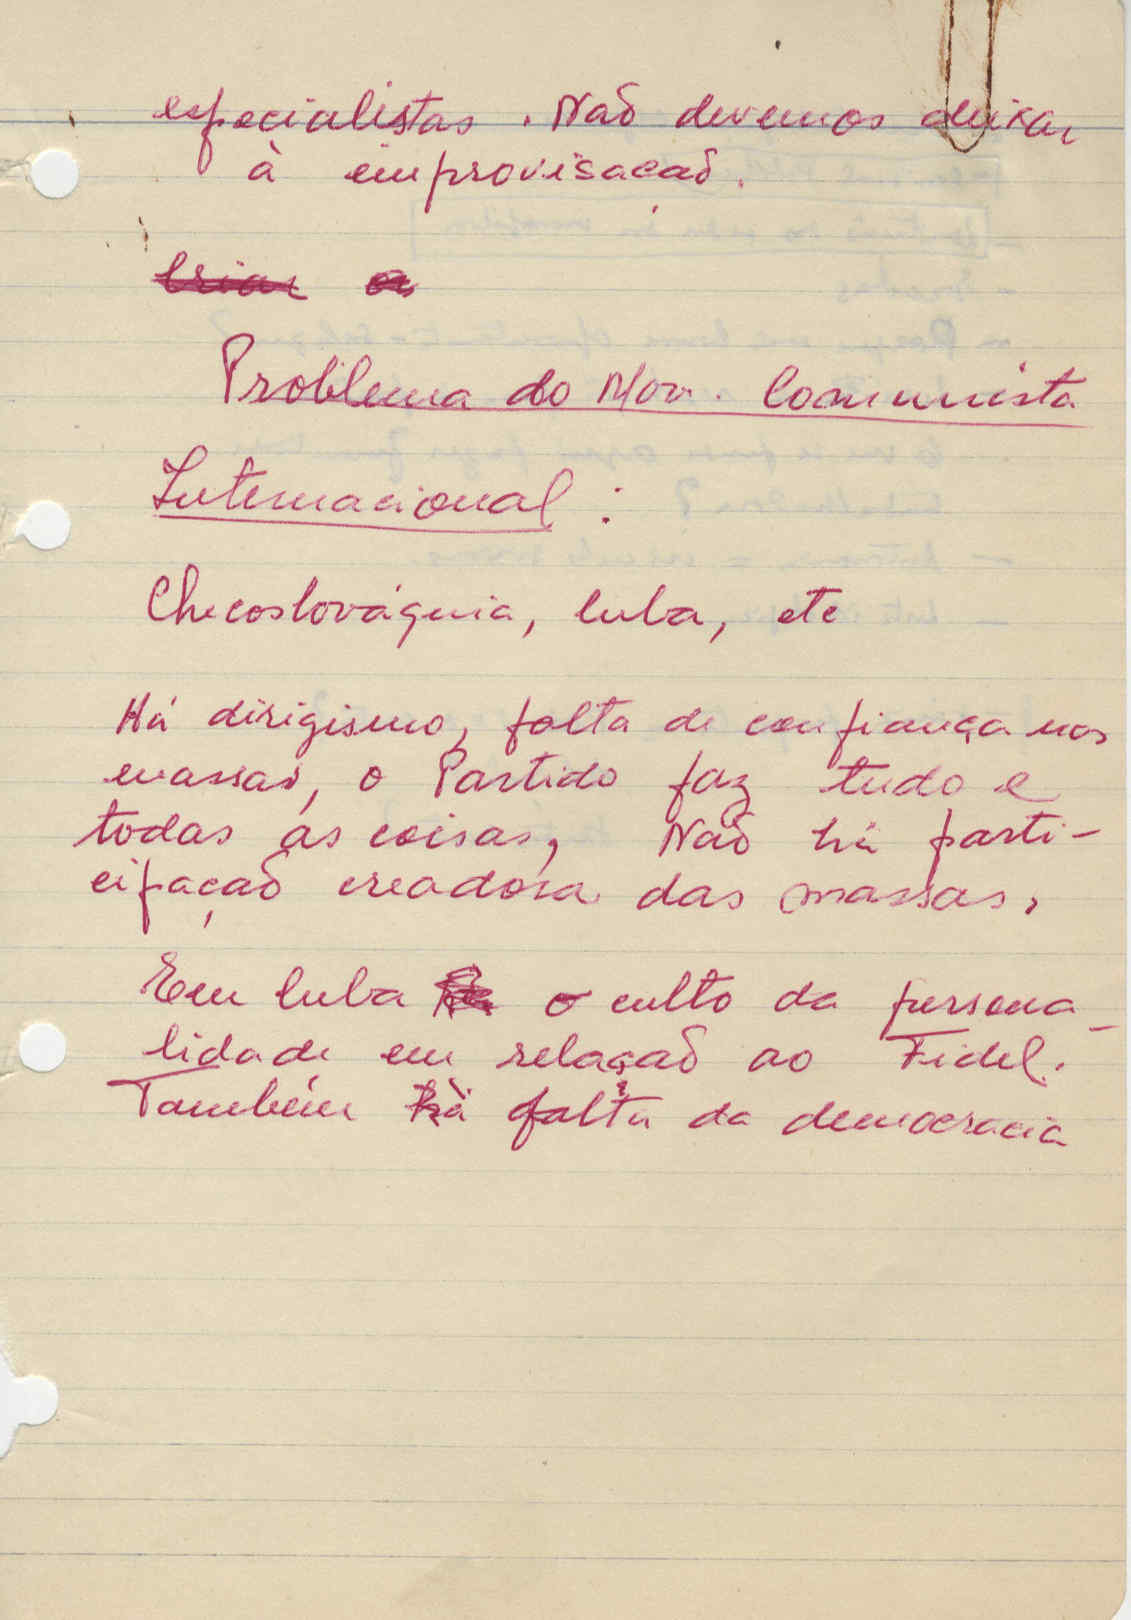 especialistas. Não devemos deixar
à improvisação.
Criar os
Problema do Mov. Comunista
Internacional :
Checoslováquia, Cuba, etc
Há dirigismo, falta de confiança nas
massas, o Partido faz tudo e
todas as coisas, Não há parti-
cipação creadora das massas,
Em Cuba o culto da persona-
lidade em relação ao Fidel.
Também há falta da democracia